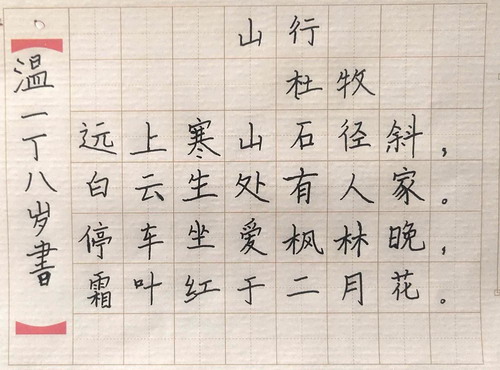 山行
杜牧
远上寒山石径斜，
白云生处有人家。
停车坐爱枫林晚，
霜叶红于二月花。
温一丁八岁書